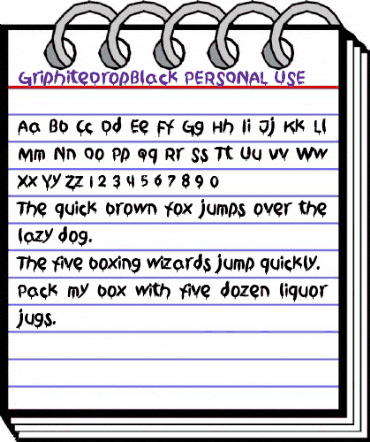 GriphiteDropBlack PERSONAL USE
Aa Bb Cc Dd Ee Ff Gg Hh Ii Jj Kk Ll
Mm Nn Oo Pp Qq Rr Ss Tt Uu Vv Ww
Xx Yy Zz 1 2 3 4 5 6 7 8 9 0
The quick brown fox jumps over the
lazy dog.
The five boxing wizards jump quickly.
Pack my box with five dozen liquor
jugs.